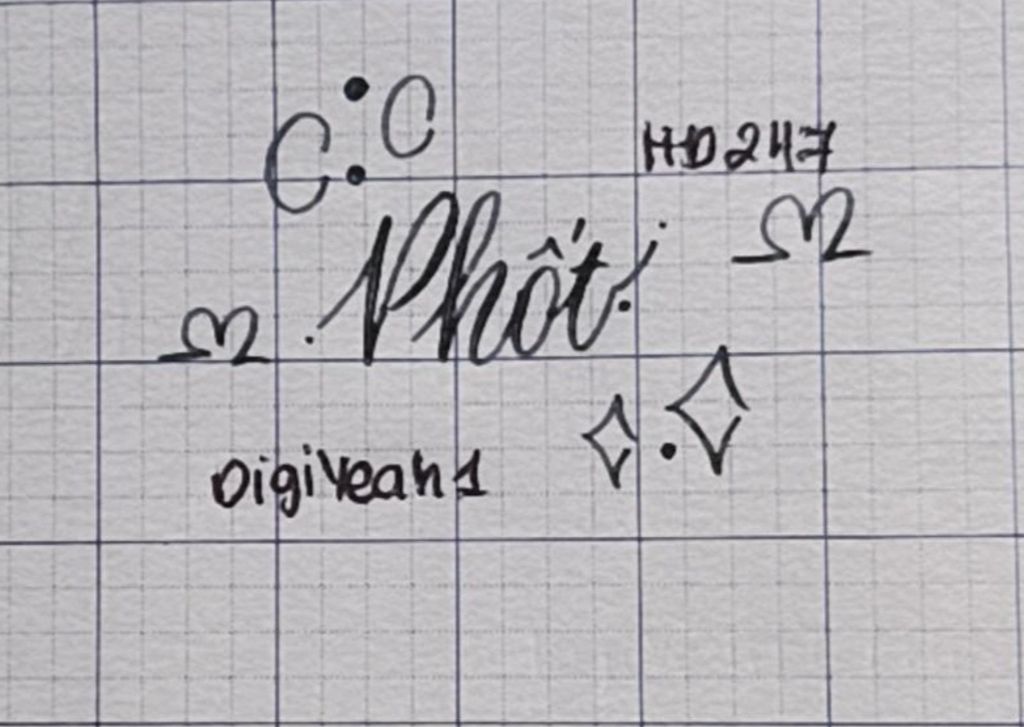 HD247
Phốt
DigiYeah1